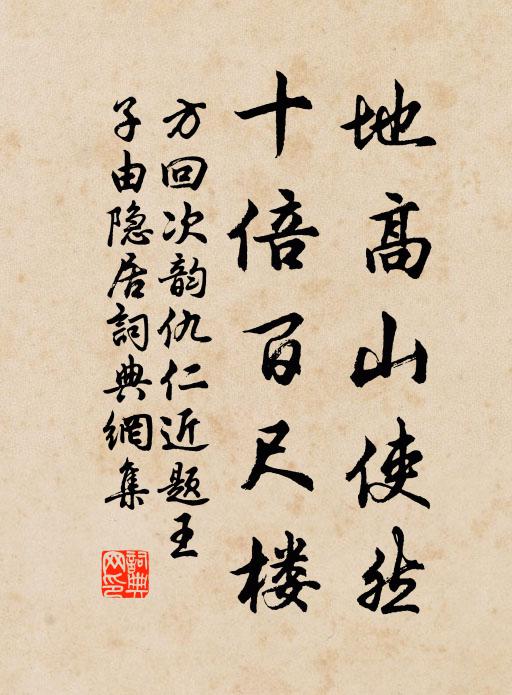 地髙山使然
十倍百尺楼
方回次韵仇仁近题王
子由隐居詞典網集
詞典网印